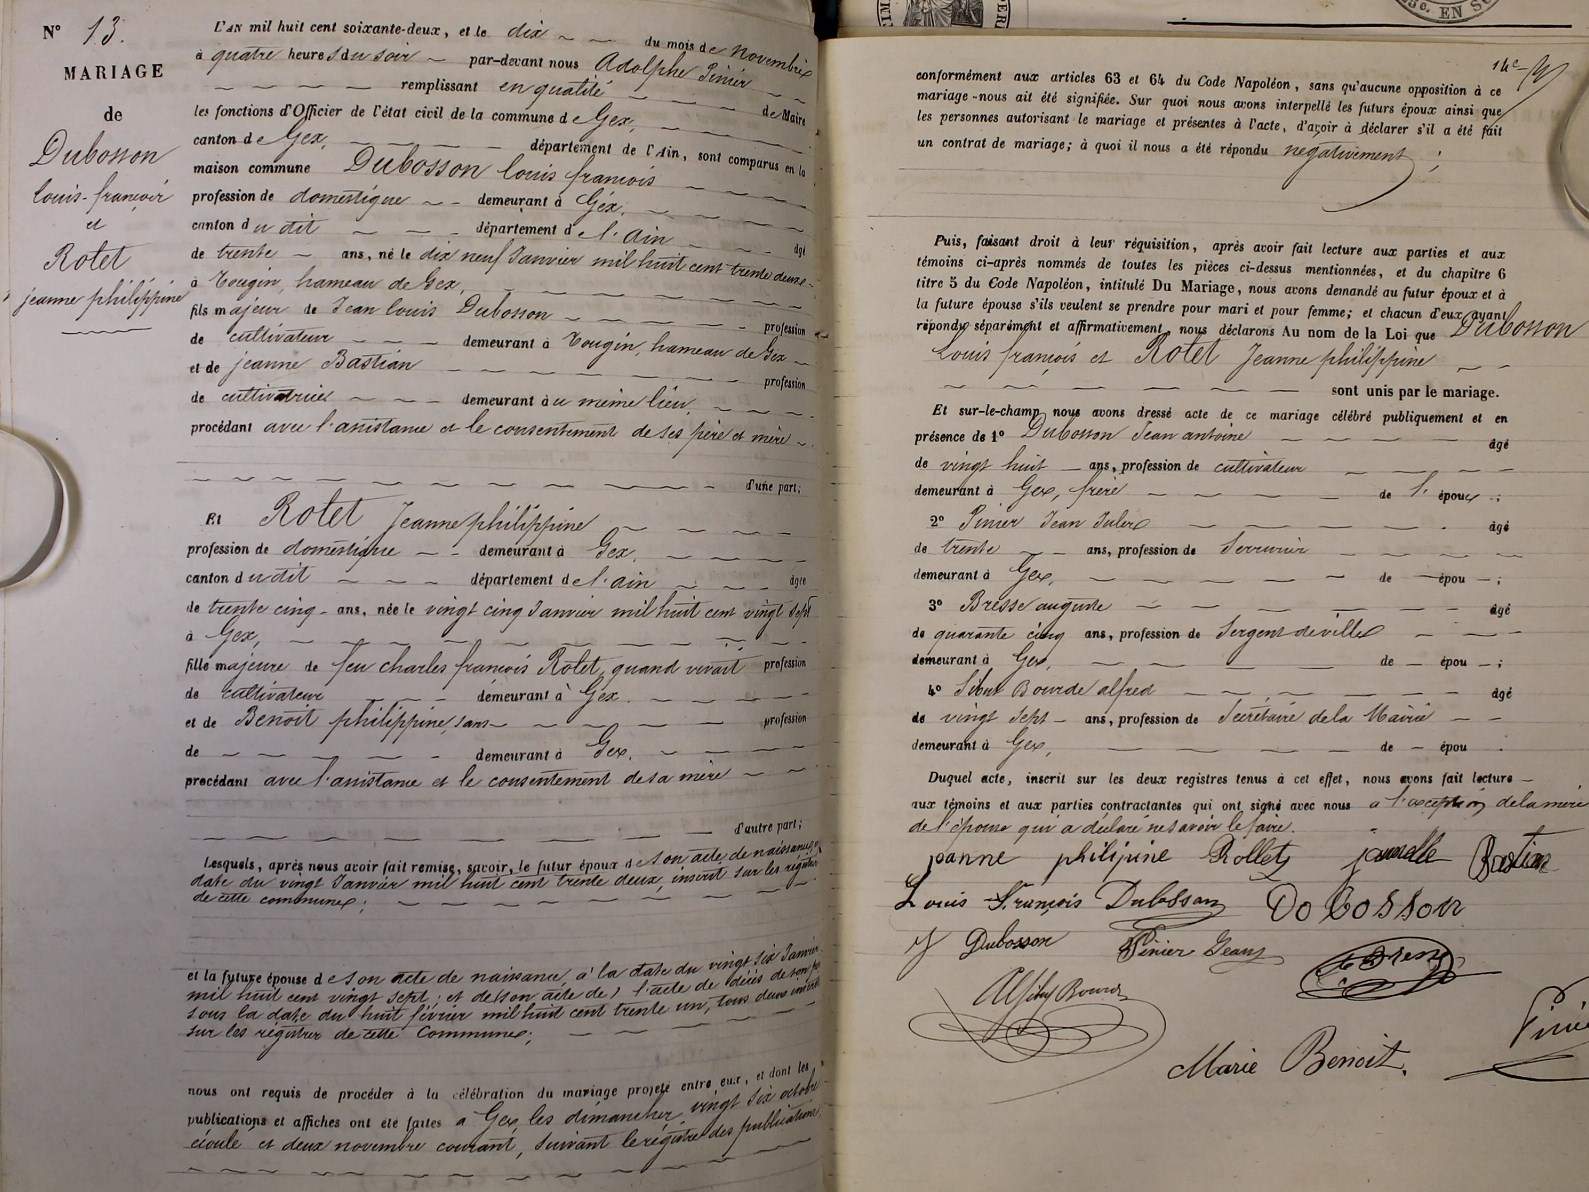 N° 13.
MARIAGE
de
Dubosson
louis-françois
et
Rolet
jeanne philippine
L'AN mil huit cent soixante-deux, et le dix du mois de novembre
à quatre heures du soir par-devant nous Adolphe Pinier
remplissant en qualité de Maire
les fonctions d'Officier de l'état civil de la commune de Gex,
canton de Gex, département de l'Ain, sont comparus en la
maison commune Dubosson louis françois
profession de domestique demeurant à Gex,
canton du dit département de l'ain âgé
de trente ans, né le dix neuf Janvier mil huit cent trente deux
à Tougin, hameau de Gex,
fils majeur de Jean louis Dubosson profession
de cultivateur demeurant à Tougin, hameau de Gex
et de jeanne Bastian profession
de cultivatrice demeurant au même lieu,
procédant avec l'assistance et le consentement de ses père et mère
d'une part;
Et Rolet Jeanne philippine
profession de domestique demeurant à Gex,
canton du dit département de l'ain âgée
de trente cinq ans, née le vingt cinq Janvier mil huit cent vingt sept
à Gex,
fille majeure de feu charles françois Rolet, quand vivait profession
de cultivateur demeurant à Gex
et de Benoit philippine, sans profession
de demeurant à Gex,
procédant avec l'assistance et le consentement de sa mère
d'autre part;
Lesquels, après nous avoir fait remise, savoir, le futur époux de son acte de naissance,
date du vingt Janvier mil huit cent trente deux, inscrit sur les registres
de cette commune;
et la future épouse de son acte de naissance, à la date du vingt six Janvier
mil huit cent vingt sept; et de l'acte de décès de son père
sous la date du huit février mil huit cent trente un, tous deux inscrits
sur les registres de cette Commune;
nous ont requis de procéder à la célébration du mariage projeté entre eux, et dont les
publications et affiches ont été faites à Gex les dimanches vingt six octobre
écoulé et deux novembre courant, suivant le registre des publications
14e
conformément aux articles 63 et 64 du Code Napoléon, sans qu'aucune opposition à ce
mariage nous ait été signifiée. Sur quoi nous avons interpellé les futurs époux ainsi que
les personnes autorisant le mariage et présentes à l'acte, d'avoir à déclarer s'il a été fait
un contrat de mariage; à quoi il nous a été répondu negativement;
Puis, faisant droit à leur réquisition, après avoir fait lecture aux parties et aux
témoins ci-après nommés de toutes les pièces ci-dessus mentionnées, et du chapitre 6
titre 5 du Code Napoléon, intitulé Du Mariage, nous avons demandé au futur époux et à
la future épouse s'ils veulent se prendre pour mari et pour femme; et chacun d'eux ayant
répondu séparément et affirmativement, nous déclarons Au nom de la Loi que Dubosson
louis françois et Rolet Jeanne philippine
sont unis par le mariage.
Et sur-le-champ nous avons dressé acte de ce mariage célébré publiquement et en
présence de 1° Dubosson Jean antoine âgé
de vingt huit ans, profession de cultivateur
demeurant à Gex, frère de l'époux;
2° Pinier Jean Jules âgé
de trente ans, profession de Serrurier
demeurant à Gex, de épou;
3° Bresse auguste âgé
de quarante cinq ans, profession de Sergent de ville
demeurant à Gex, de épou;
4° Bourde alfred âgé
de vingt sept ans, profession de Secrétaire de la Mairie
demeurant à Gex, de épou.
Duquel acte, inscrit sur les deux registres tenus à cet effet, nous avons fait lecture
aux témoins et aux parties contractantes qui ont signé avec nous à l'exception de la mère
de l'épouse qui a déclaré ne savoir le faire.
joanne philipine Rollet Bastian
Louis François Dubosson Do bosson
J Dubosson Pinier Jean
Marie Benoit.